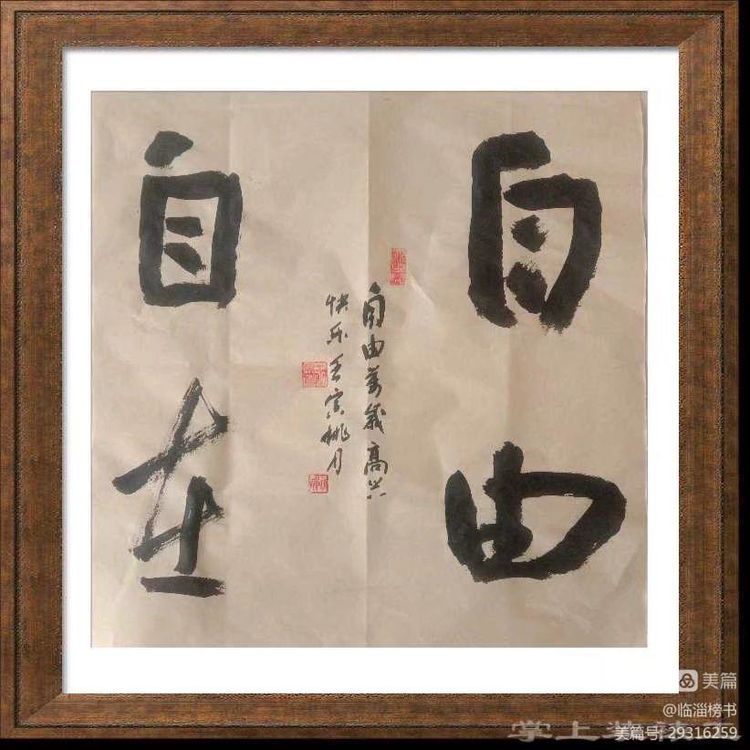 自由
自由万岁高兴
快乐壬寅桃月
自在
美篇
@临淄榜书
美篇号:29316259